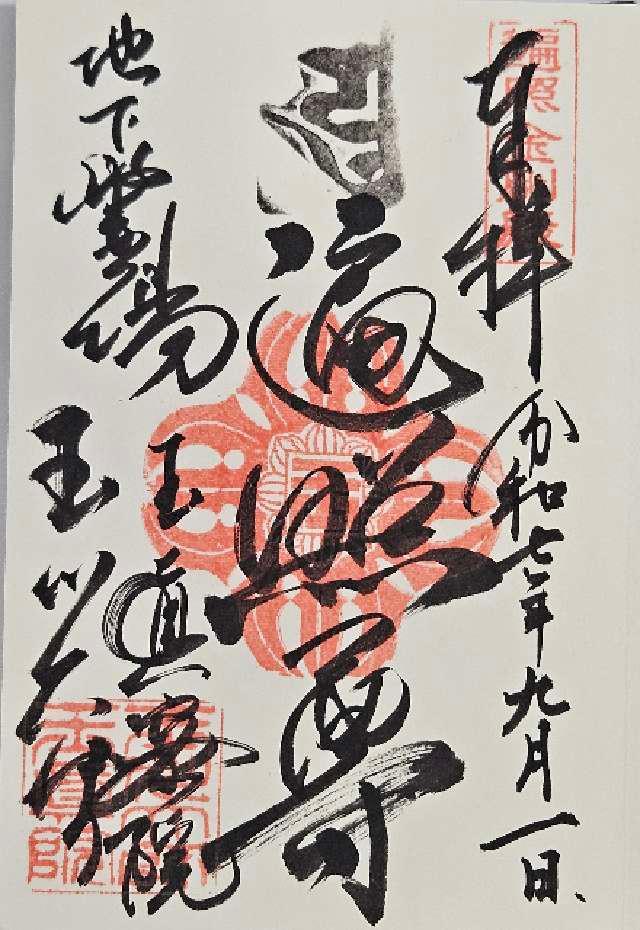 奉拝
令和七年九月一日
遍照金剛
遍照尊
地下霊場
玉眞密院
玉川大師